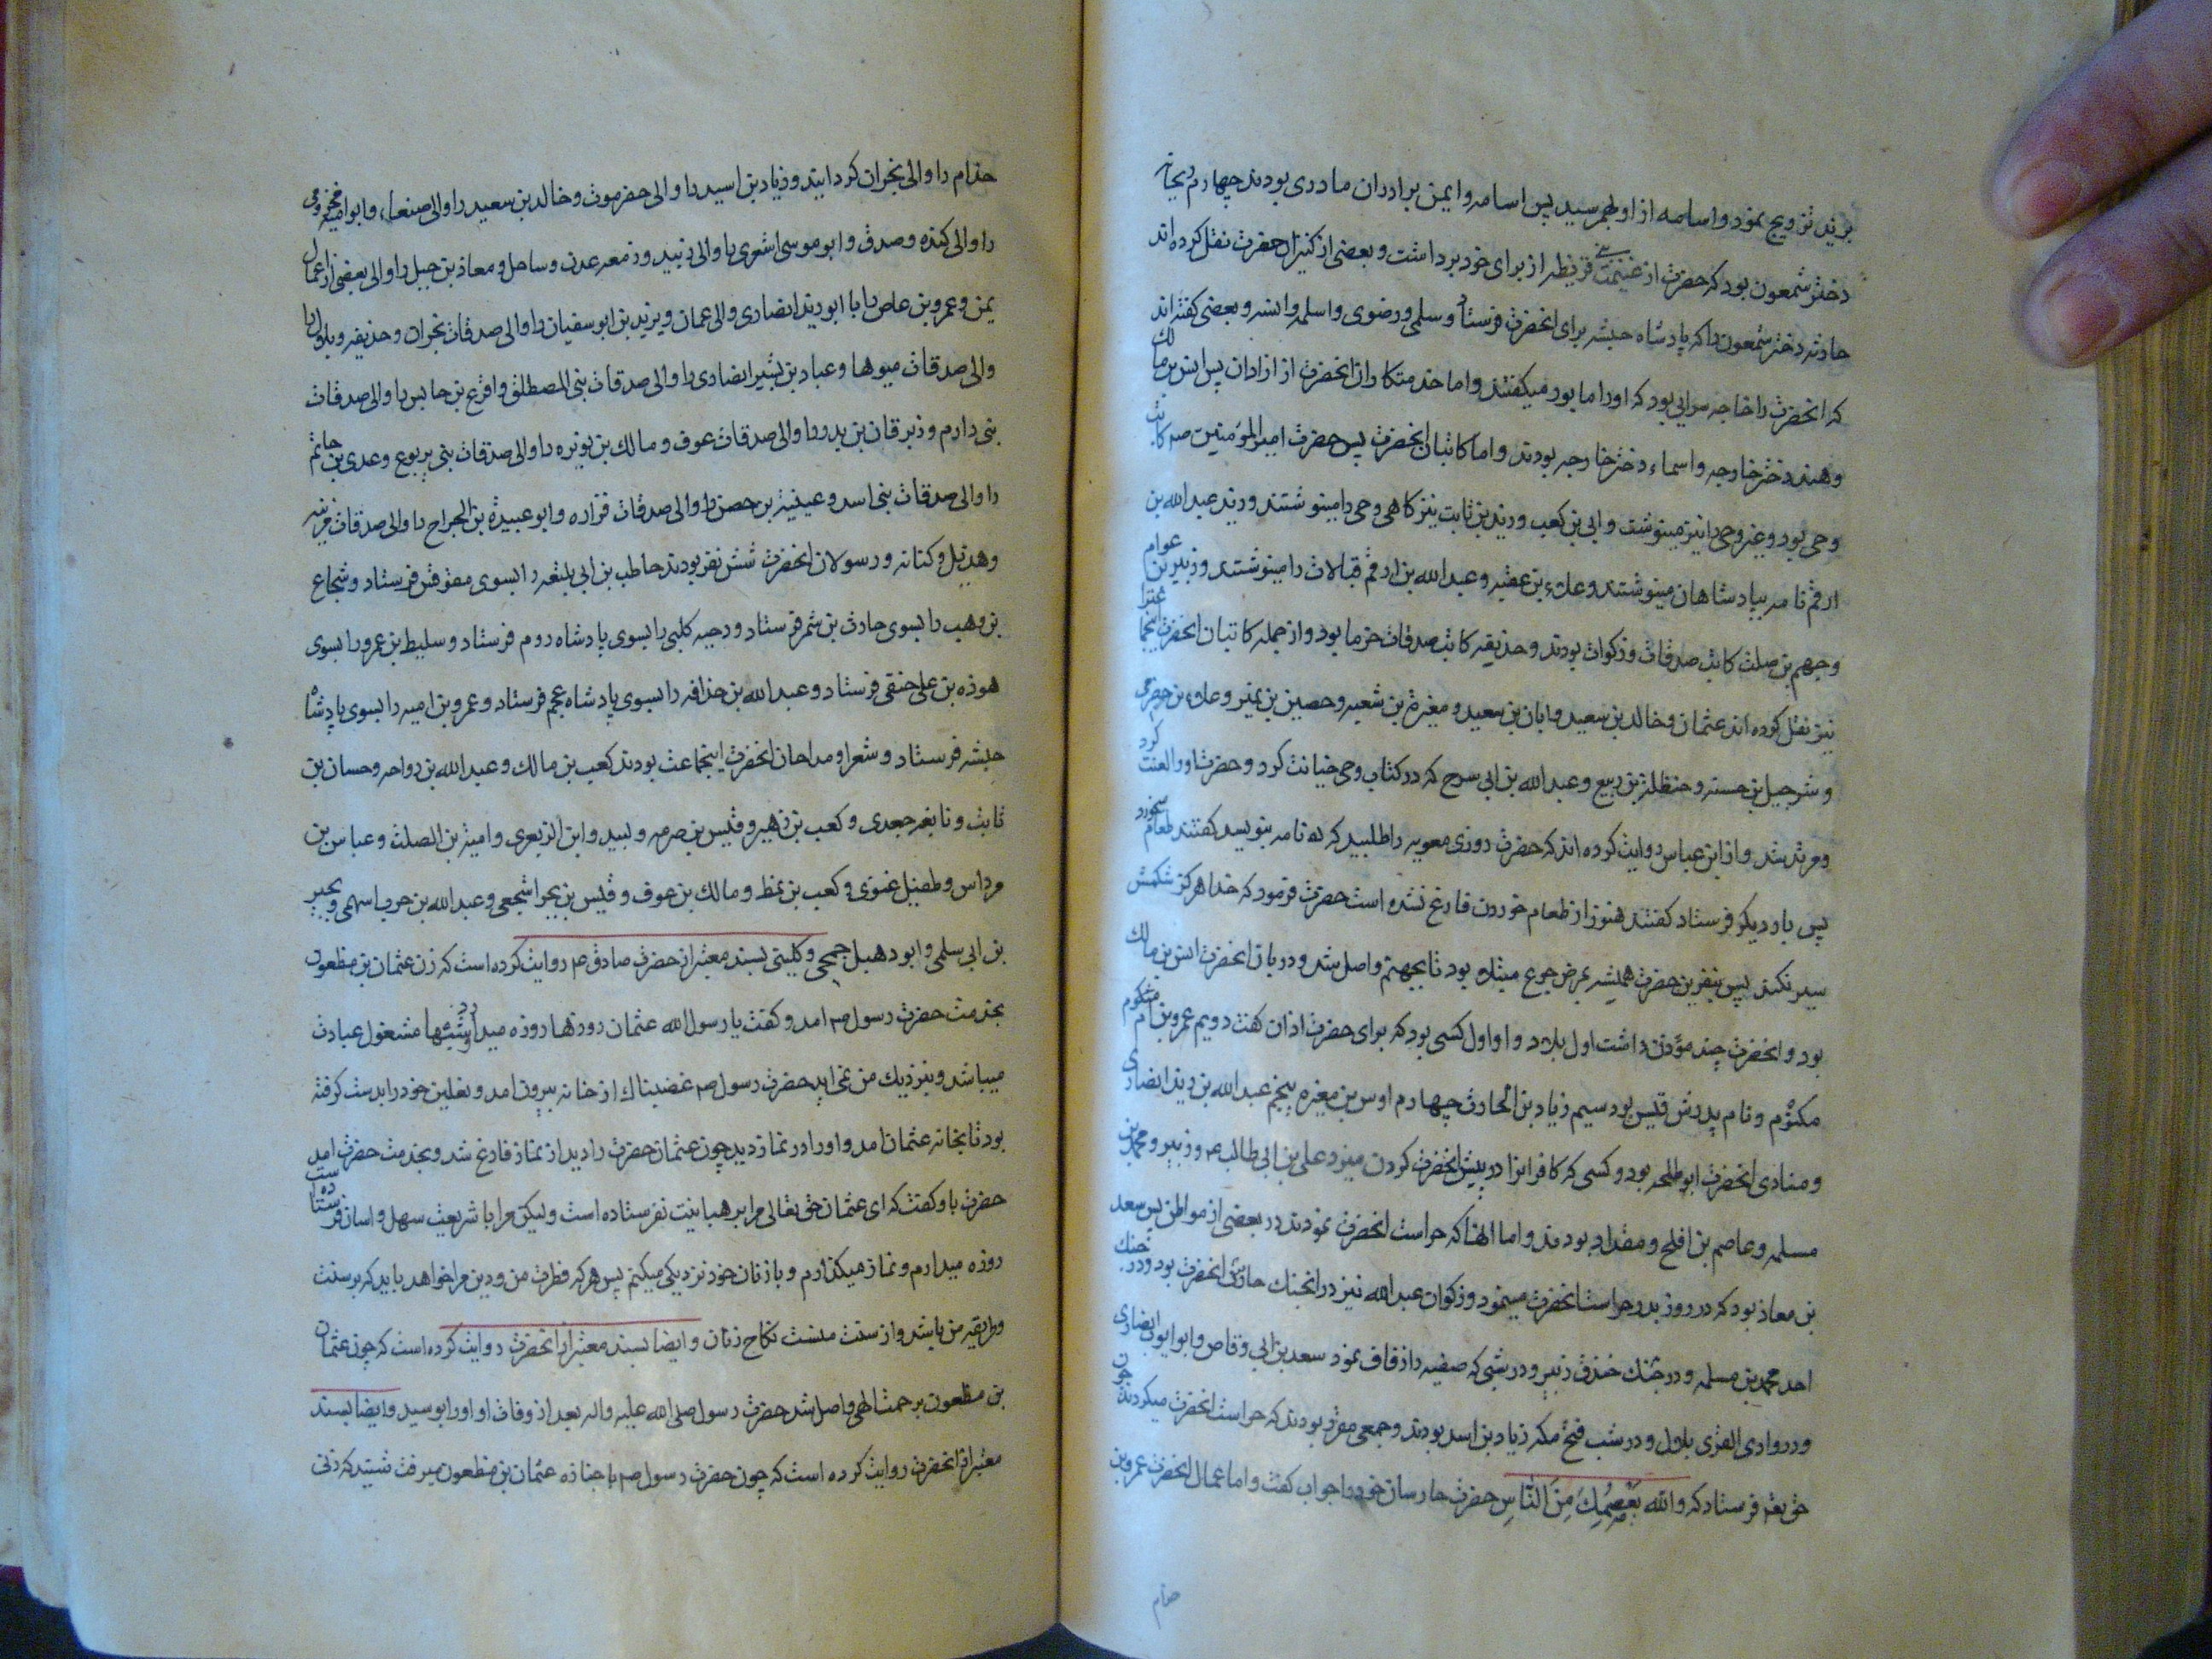 بزید تزویج نمود و اسامه از او بهم رسید پس اسامه و ایمن برادران مادری بودند چهارم ریحانه
دختر شمعون بود که حضرت از غنیمت بنی قریظه از برای خود برداشت و بعضی از کنیزان حضرت نقل کرده اند
حادثه دختر شمعون را که پادشاه حبشه برای انحضرت فرستاد و سلمی و رضوی و اسلمه وانسه و بعضی گفته اند
که انحضرت را خاجه سرایی بود که اورا مابور میگفتند و اما خدمتکاران انحضرت از ازادان پس انس بن مالک
وهند دختر خارجه و اسماء دختر خارجه بودند و اما کاتبان انحضرت پس حضرت امیرالمؤمنین صم کاتب
وحی بود و غیر وحی را نیز مینوشت و ابی بن کعب و زید بن ثابت نیز گاهی وحی را مینوشتند و زید عبدالله بن
ارقم نامه بپادشاهان مینوشتند و علاء بن عقبه و عبدالله بن ارقم قبالات را مینوشتند و زبیر بن عوام
و جهم بن صلت کاتب صدقات و زکوات بودند و حذیفه کاتب صدقات خرما بود و از جمله کاتبان انحضرت اینجماعترا
نیز نقل کرده اند عثمان و خالد بن سعید و ابان بن سعید و مغیرة بن شعبه و حصین بن نمیر و علاء بن حضرمی
و شرجیل بن حسنه و حنظلة بن ربیع و عبدالله بن ابی سرح که در کتاب وحی خیانت کرد و حضرت اورا لعنت کرد
و مرتد شد و از ابن عباس روایت کرده اند که حضرت روزی معویه را طلبید که نامه بنویسد گفتند طعام میخورد
پس بار دیگر فرستاد گفتند هنوز از طعام خوردن فارغ نشده است حضرت فرمود که خدا هرگز شکمش
سیر نکند پس بنفرین حضرت همیشه بمرض جوع مبتلا بود تا بجهنم واصل شد و دربان انحضرت انس بن مالک
بود و انحضرت چند مؤذن داشت اول بلال و او اول کسی بود که برای حضرت اذان گفت دویم عمرو بن ام مکتوم
مکتوم و نام پدرش قیس بود سیم زیاد بن الحارث چهارم اوس بن مغیره پنجم عبدالله بن زید انصاری
و منادی انحضرت ابوطلحه بود و کسی که کافرانرا در پیش انحضرت کردن میزد علی بن ابی طالب عم و زبیر و محمد بن
مسلمه و عاصم بن افلح و مقداد بودند و اما انها که حراست انحضرت نمودند در بعضی از مواطن پس سعد
بن معاذ بود که در روز بدر حراست انحضرت مینمود و زکوان عبدالله نیز در انجنک حارس انحضرت بود و در جنک
احد محمد بن مسلمه و در جنک خندق زبیر و در شبی که صفیه را زفاف نمود سعد بن ابی وقاص و ابو ایوب انصاری
و در وادی القری بلال و در شب فتح مکه زیاد بن اسد بودند و جمعی مقرر بودند که حراست انحضرت میکردند چون
حق بعثه فرستاد که والله یعصمک من الناس حضرت حارسان خود را جواب گفت و اما عمال انحضرت عمرو بن
حزام
حزام را والی نجران گردانید و زیاد بن اسید را والی حضرموت و خالد بن سعید را والی صنعا، و ابو امیه مخزومی
را والی کنده و صدق و ابو موسی اشعری را والی زبید و زمعه عدن و ساحل و معاذ بن جبل را والی بعضی از اعمال
یمن و عمرو بن عاص را با ابو زید انصاری والی عمان و یزید بن ابو سفیان را والی صدقات نجران و حذیفه و بلال را
والی صدقات میوها و عباد بن بشیر انصاری را والی صدقات بنی المصطلق و اقرع بن حابس را والی صدقات
بنی دارم و زبرقان بن بدر را والی صدقات عوف و مالک بن نویره را والی صدقات بنی یربوع و عدی بن حاتم
را والی صدقات بنی اسد و عیینة بن حصن را والی صدقات فزاره و ابو عبیدة بن الجراح را والی صدقات مزینه
و هذیل و کنانه و رسولان انحضرت شش نفر بودند حاطب بن ابی بلتعه را بسوی مقوقس فرستاد و شجاع
بن وهب را بسوی حارث بن شمر فرستاد و دحیه کلبی را بسوی پادشاه روم فرستاد و سلیط بن عمرو را بسوی
هوذه بن علی حنفی فرستاد و عبدالله بن حذافه را بسوی پادشاه عجم فرستاد و عمرو بن امیه را بسوی پادشاه
حبشه فرستاد و شعرا و مداحان انحضرت اینجماعت بودند کعب بن مالک و عبدالله بن رواحه و حسان بن
ثابت و نابغه جعدی و کعب بن زهیر و قیس بن صرمه و لبید و ابن الزبعری و امیة بن الصلت و عباس بن
مرداس و طفیل غنوی و کعب بن نمط و مالک بن عوف و قیس بن بحر اشجعی و عبدالله بن حرب اسهمی و بجیر
بن ابی سلمی و ابو دهبل جمحی و کلینی بسند معتبر از حضرت صادق عم روایت کرده است که زن عثمان بن مظعون
بخدمت حضرت رسول صم امد و گفت یا رسول الله عثمان روزها روزه میدارد و شبها مشغول عبادت
میباشد و بنزدیک من نمی اید حضرت رسول صم غضبناک از خانه بیرون امد و نعلین خود را بدست گرفته
بود تا بخانه عثمان امد و اورا در نماز دید چون عثمان حضرت را دید از نماز فارغ شد و بخدمت حضرت امد
حضرت باو گفت که ای عثمان حق تعالی مرا برهبانیت نفرستاده است ولیکن مرا با شریعت سهل و اسان فرستاده است
روزه میدارم و نماز میگذارم و با زنان خود نزدیکی میکنم پس هرکه فطرت من و دین مرا خواهد باید که بر سنت
و طریقه من باشد و از سنت منست نکاح زنان و ایضا بسند معتبر از انحضرت روایت کرده است که چون عثمان
بن مظعون برحمت الهی واصل شد حضرت رسول صلی الله علیه واله بعد از وفات او اورا بوسید و ایضا بسند
معتبر از انحضرت روایت کرده است که چون حضرت رسول صم با جنازه عثمان بن مظعون میرفت شنید که زنی